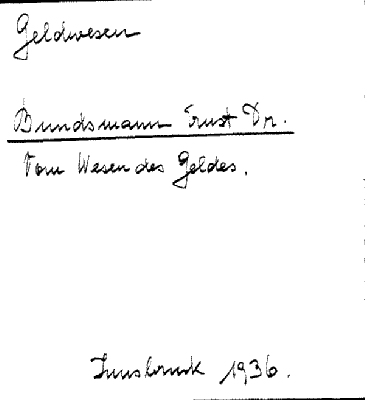 Geldwesen
Bundsmann Ernst Dr.
Vom Wesen des Geldes.
Innsbruck 1936.